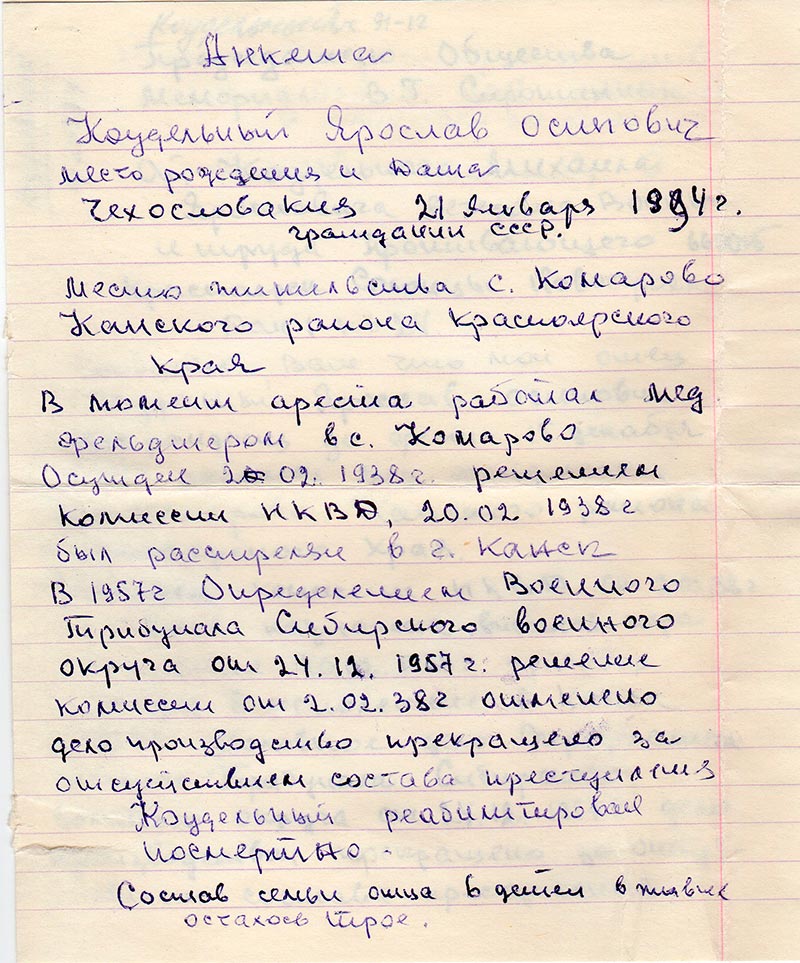 Анкета
Коудельный Ярослав Осипович
место рождения и дата
Чехословакия 21 января 1894 г.
гражданин СССР.
Место жительства с. Комарово
Канского района Красноярского
края
В момент ареста работал мед.
фельдшером в с. Комарово
Осужден 2 02. 1938 г. решением
комиссии НКВД, 20.02 1938 г
был расстрелян в г. Канск
В 1957 г Определением Военного
Трибунала Сибирского военного
округа от 24.12. 1957 г. решение
комиссии от 2.02.38 г отменено
дело производство прекращено за
отсутствием состава преступления
Коудельный реабилитирован
посмертно.
Состав семьи отца 6 детей в живых
осталось трое.